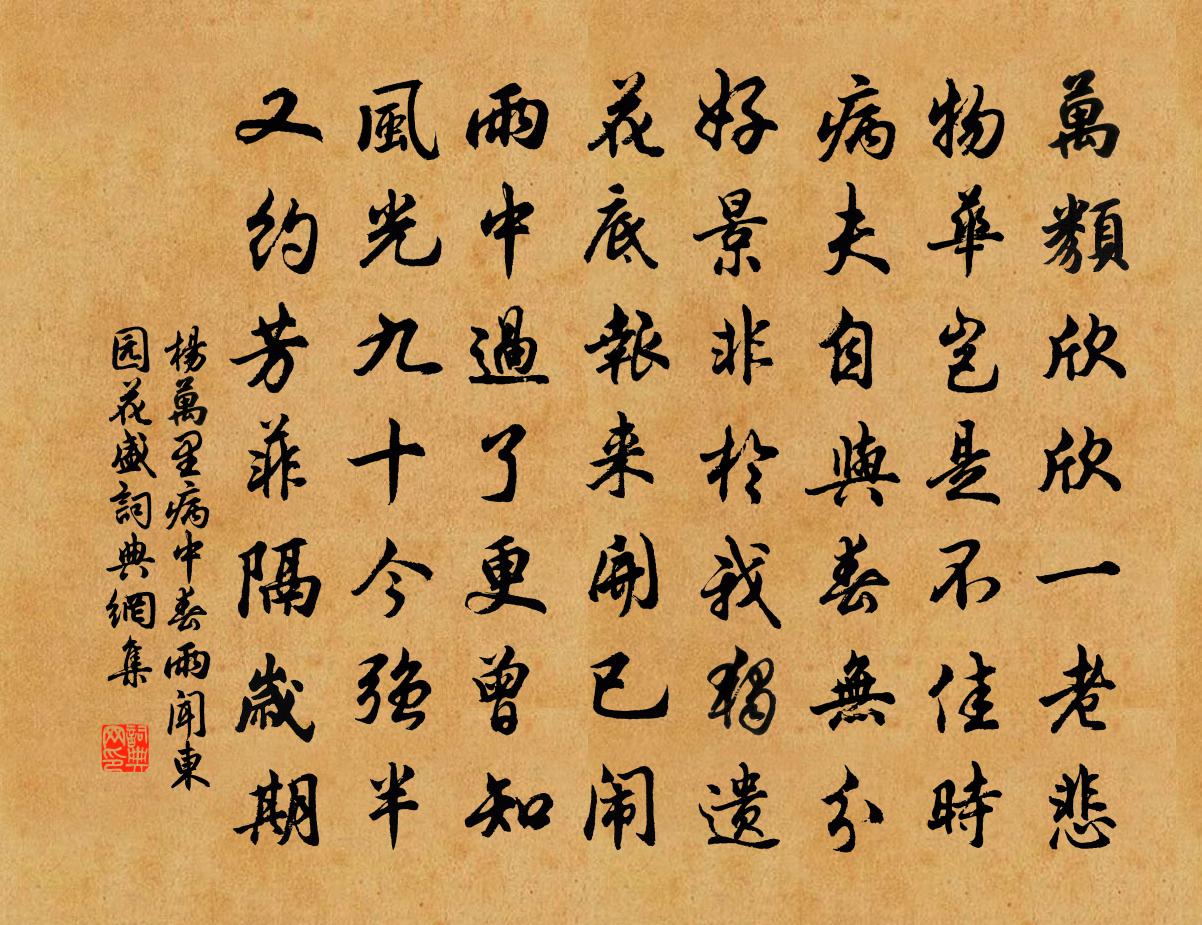 萬類欣欣一老悲
物華豈是不佳時
病夫自與春無分
好景非於我獨遺
花底報来開已闹
雨中過了更曾知
風光九十今强半
又約芳菲隔歲期
楊萬里病中春雨闻東
园花盛詞典網集
詞典網印